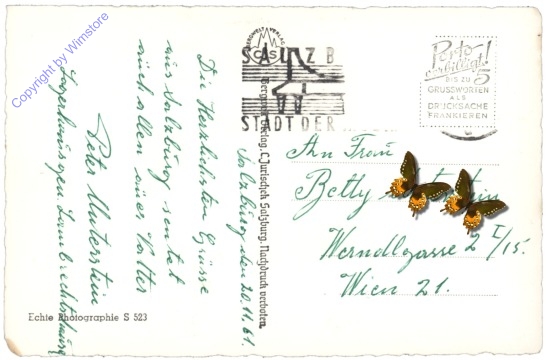 Copyright by Wimstore
BERGWELT VERLAG
CJS
SALZB
STADT DER
Porto
verbilligt!
BIS ZU
5
GRUSSWORTEN
ALS
DRUCKSACHE
FRANKIEREN
Salzburg, den 20.11.61
Die Herzlichsten Grüsse
aus Salzburg sendet
euch allen euer Vatter
Peter
Bergwelt Verlag, C. Jurischek Salzburg. Nachdruck verboten.
An Frau
Betty
Werndlgasse 2 I/15.
Wien 21.
Echte Photographie S 523